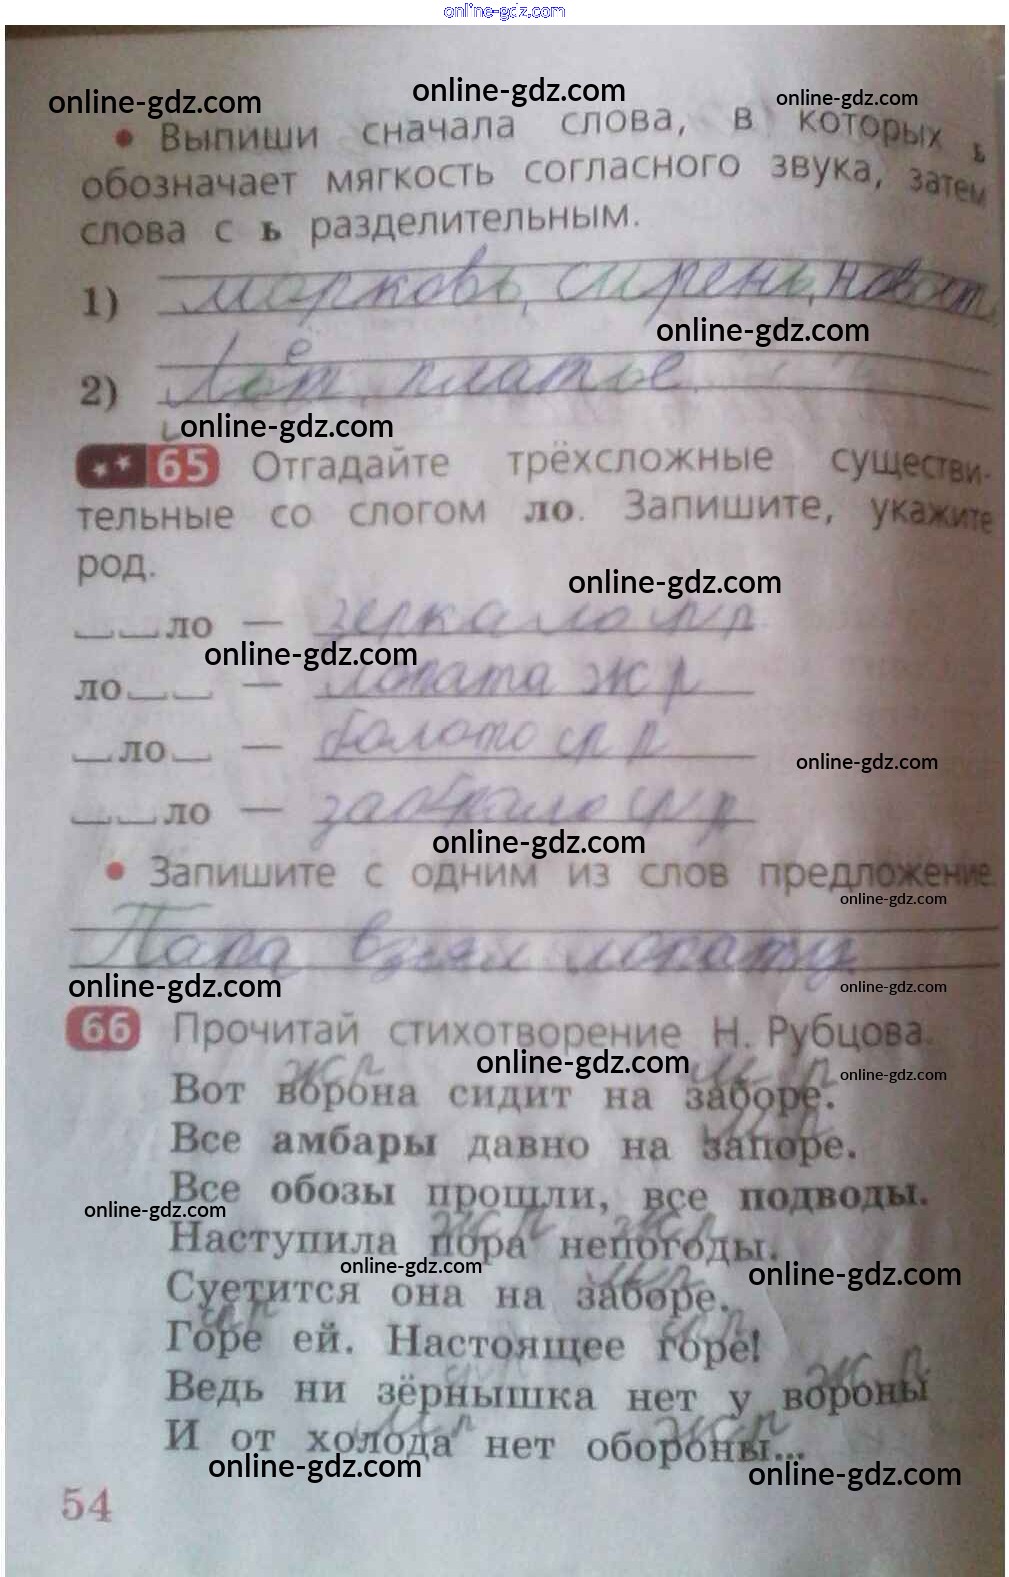 online-gdz.com
online-gdz.com online-gdz.com online-gdz.com
• Выпиши сначала слова, в которых ь
обозначает мягкость согласного звука, затем
слова с ь разделительным.
1) морковь, сирень,
online-gdz.com
2) льёт, платье.
online-gdz.com
65 Отгадайте трёхсложные существи-
тельные со слогом ло. Запишите, укажите
род.
online-gdz.com
ло — зеркало ср р
online-gdz.com
ло — лопата ж р
ло — болото ср р
online-gdz.com
ло — забрало ср р
online-gdz.com
• Запишите с одним из слов предложение.
online-gdz.com
Папа взял лопату
online-gdz.com online-gdz.com
66 Прочитай стихотворение Н. Рубцова.
online-gdz.com
ж р м р online-gdz.com
Вот ворона сидит на заборе.
м р
Все амбары давно на запоре.
Все обозы прошли, все подводы.
online-gdz.com
ж р ж р
Наступила пора непогоды.
online-gdz.com online-gdz.com
м р
Суетится она на заборе.
ср р ср р
Горе ей. Настоящее горе!
ср р ж р
Ведь ни зёрнышка нет у вороны
м р ж р
И от холода нет обороны...
online-gdz.com online-gdz.com
54